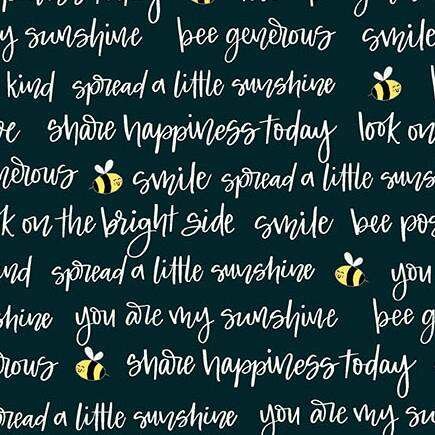 y sunshine bee generous smile
kind spread a little sunshine
share happiness today look on
nerous smile spread a little suns
k on the bright side smile bee pos
nd spread a little sunshine you
shine you are my sunshine bee g
rous share happiness today
read a little sunshine you are my su